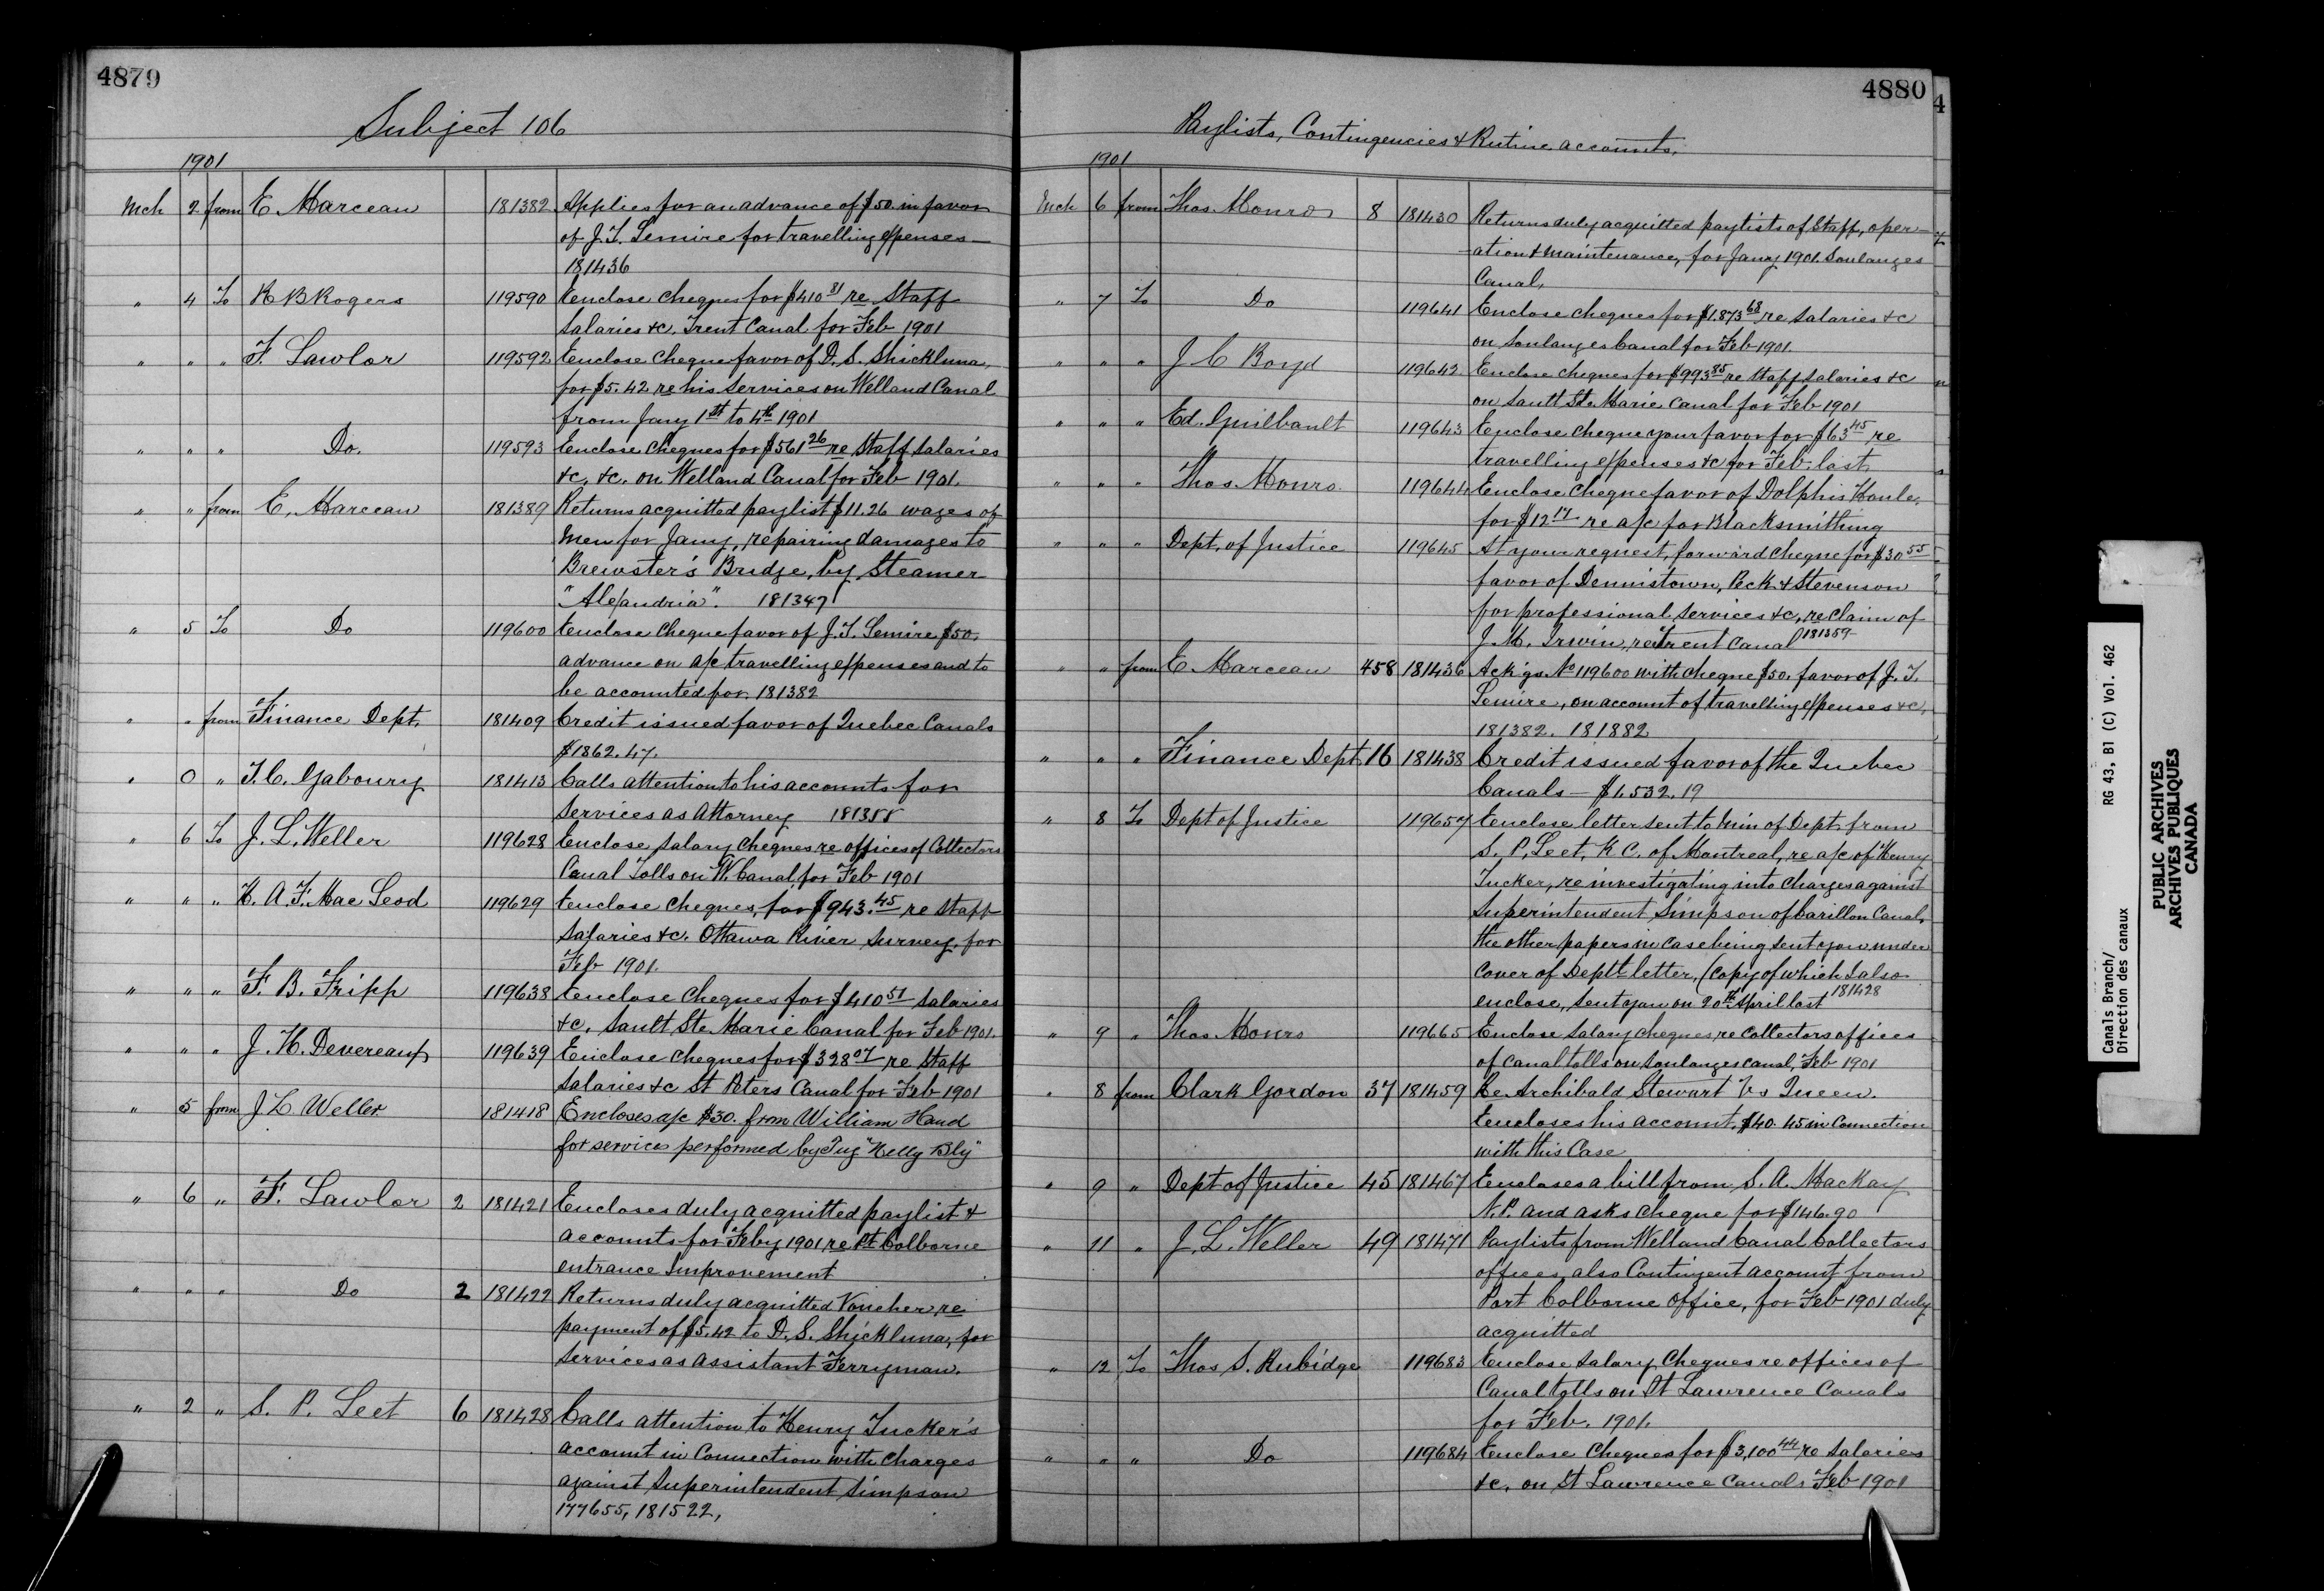 4879
Subject 106
1901
Mch 2 from E Marceau 181382 Applies for an advance of $50. in favor
of J. T. Lemire for travelling expenses —
181436
" 4 To R B Rogers 119590 Enclose cheques for $410 81 re Staff
Salaries &c. Trent Canal for Feb 1901
" " " F. Lawlor 119592 Enclose cheque favor of D. S. Shickluna,
for $5.42 re his services on Welland Canal
from Jany 1st to 4th 1901
" " " Do. 119593 Enclose cheques for $561 26 re Staff Salaries
&c, &c. on Welland Canal for Feb 1901.
" " from E. Marceau 181389 Returns acquitted paylist $11.26 wages of
men for Jany, repairing damages to
Brewster's Bridge, by Steamer
"Alexandria". 181347
" 5 To Do 119600 Enclose cheque favor of J. T. Lemire $50.
advance on a/c travelling expenses and to
be accounted for. 181382
" " from Finance Dept. 181409 Credit issued favor of Quebec Canals
$1862.47.
" 0 " T. C. Gaboury 181413 Calls attention to his accounts for
services as Attorney 181388
" 6 To J. L. Weller 119628 Enclose Salary cheques re offices of Collectors
Canal Tolls on W. Canal for Feb 1901
" " " H. A. F. MacLeod 119629 Enclose cheques, for $943.45 re Staff
Salaries &c. Ottawa River Survey, for
Feb 1901.
" " " F. B. Fripp 119638 Enclose cheques for $410 51 Salaries
&c. Sault Ste Marie Canal for Feb 1901.
" " " J. H. Devereaux 119639 Enclose cheques for $328 07 re Staff
Salaries &c St Peters Canal for Feb 1901
" 5 from J L Weller 181418 Encloses a/c $30. from William Hand
for services performed by Tug "Nelly Bly"
" 6 " F. Lawlor 2 181421 Encloses duly acquitted paylist &
accounts for Feby 1901, re Pt Colborne
entrance Improvement
" " " Do 2 181422 Returns duly acquitted Voucher, re
payment of $5.42 to D. S. Shickluna, for
services as Assistant Ferryman.
" 2 " S. P. Leet 6 181428 Calls attention to Henry Tucker's
account in connection with charges
against Superintendent Simpson
177655, 181522,
4880
4
Paylists, Contingencies & Rutine accounts.
1901
Mch 6 from Thos. Monro 8 181430 Returns duly acquitted paylists of Staff, oper-
-ation & maintenance, for Jany 1901. Soulanges
Canal.
" 7 To Do 119641 Enclose cheques for $1,873 68 re Salaries &c
on Soulanges Canal for Feb 1901.
" " " J C Boyd 119642 Enclose cheques for $993 85 re Staff salaries &c
on Sault Ste Marie Canal for Feb 1901
" " " Ed. Guilbault 119643 Enclose cheque your favor for $63 45 re
travelling expenses &c for Feb. last
" " " Thos. Monro. 119644 Enclose cheque favor of Dolphis Houle,
for $12 17 re a/c for Blacksmithing
" " " Dept. of Justice 119645 At your request, forward cheque for $30 55
favor of Dennistown, Peck & Stevenson
for professional services &c, re claim of
J. M. Irwin, re Trent Canal 181359
" " from E. Marceau 458 181436 Ack'gs No 119600 with cheque $50. favor of J. T.
Lemire, on account of travelling expenses &c.
181382. 181882
" " " Finance Dept 16 181438 Credit issued favor of the Quebec
Canals — $1,532.19
" 8 To Dept of Justice 119657 Enclose letter sent to Min of Dept. from
S. P. Leet, K C. of Montreal, re a/c of Henry
Tucker, re investigating into charges against
Superintendent Simpson of Carillon Canal,
the other papers in case being sent you under
cover of Deptl letter, (copy of which I also
enclose, sent you on 20th April last 181428
" 9 " Thos Monro 119665 Enclose Salary cheques, re Collectors offices
of canal tolls on Soulanges canal, Feb 1901
" 8 from Clark Gordon 37 181459 Re Archibald Stewart Vs Queen.
Encloses his account, $40.45 in connection
with this Case
" 9 " Dept of Justice 45 181467 Encloses a bill from S. A. Mackay
N.P. and asks cheque for $146.90
" 11 " J. L. Weller 49 181471 Paylists from Welland Canal Collectors
offices, also Contingent account from
Port Colborne office, for Feb 1901 duly
acquitted
" 12 To Thos S. Rubidge 119683 Enclose Salary Cheques re offices of
Canal tolls on St Lawrence Canals
for Feb. 1901.
" " " Do 119684 Enclose Cheques for $3,100 44 re Salaries
&c. on St Lawrence Canals Feb 1901
Canals Branch/
Direction des canaux
RG 43, B1 (C) Vol. 462
PUBLIC ARCHIVES
ARCHIVES PUBLIQUES
CANADA